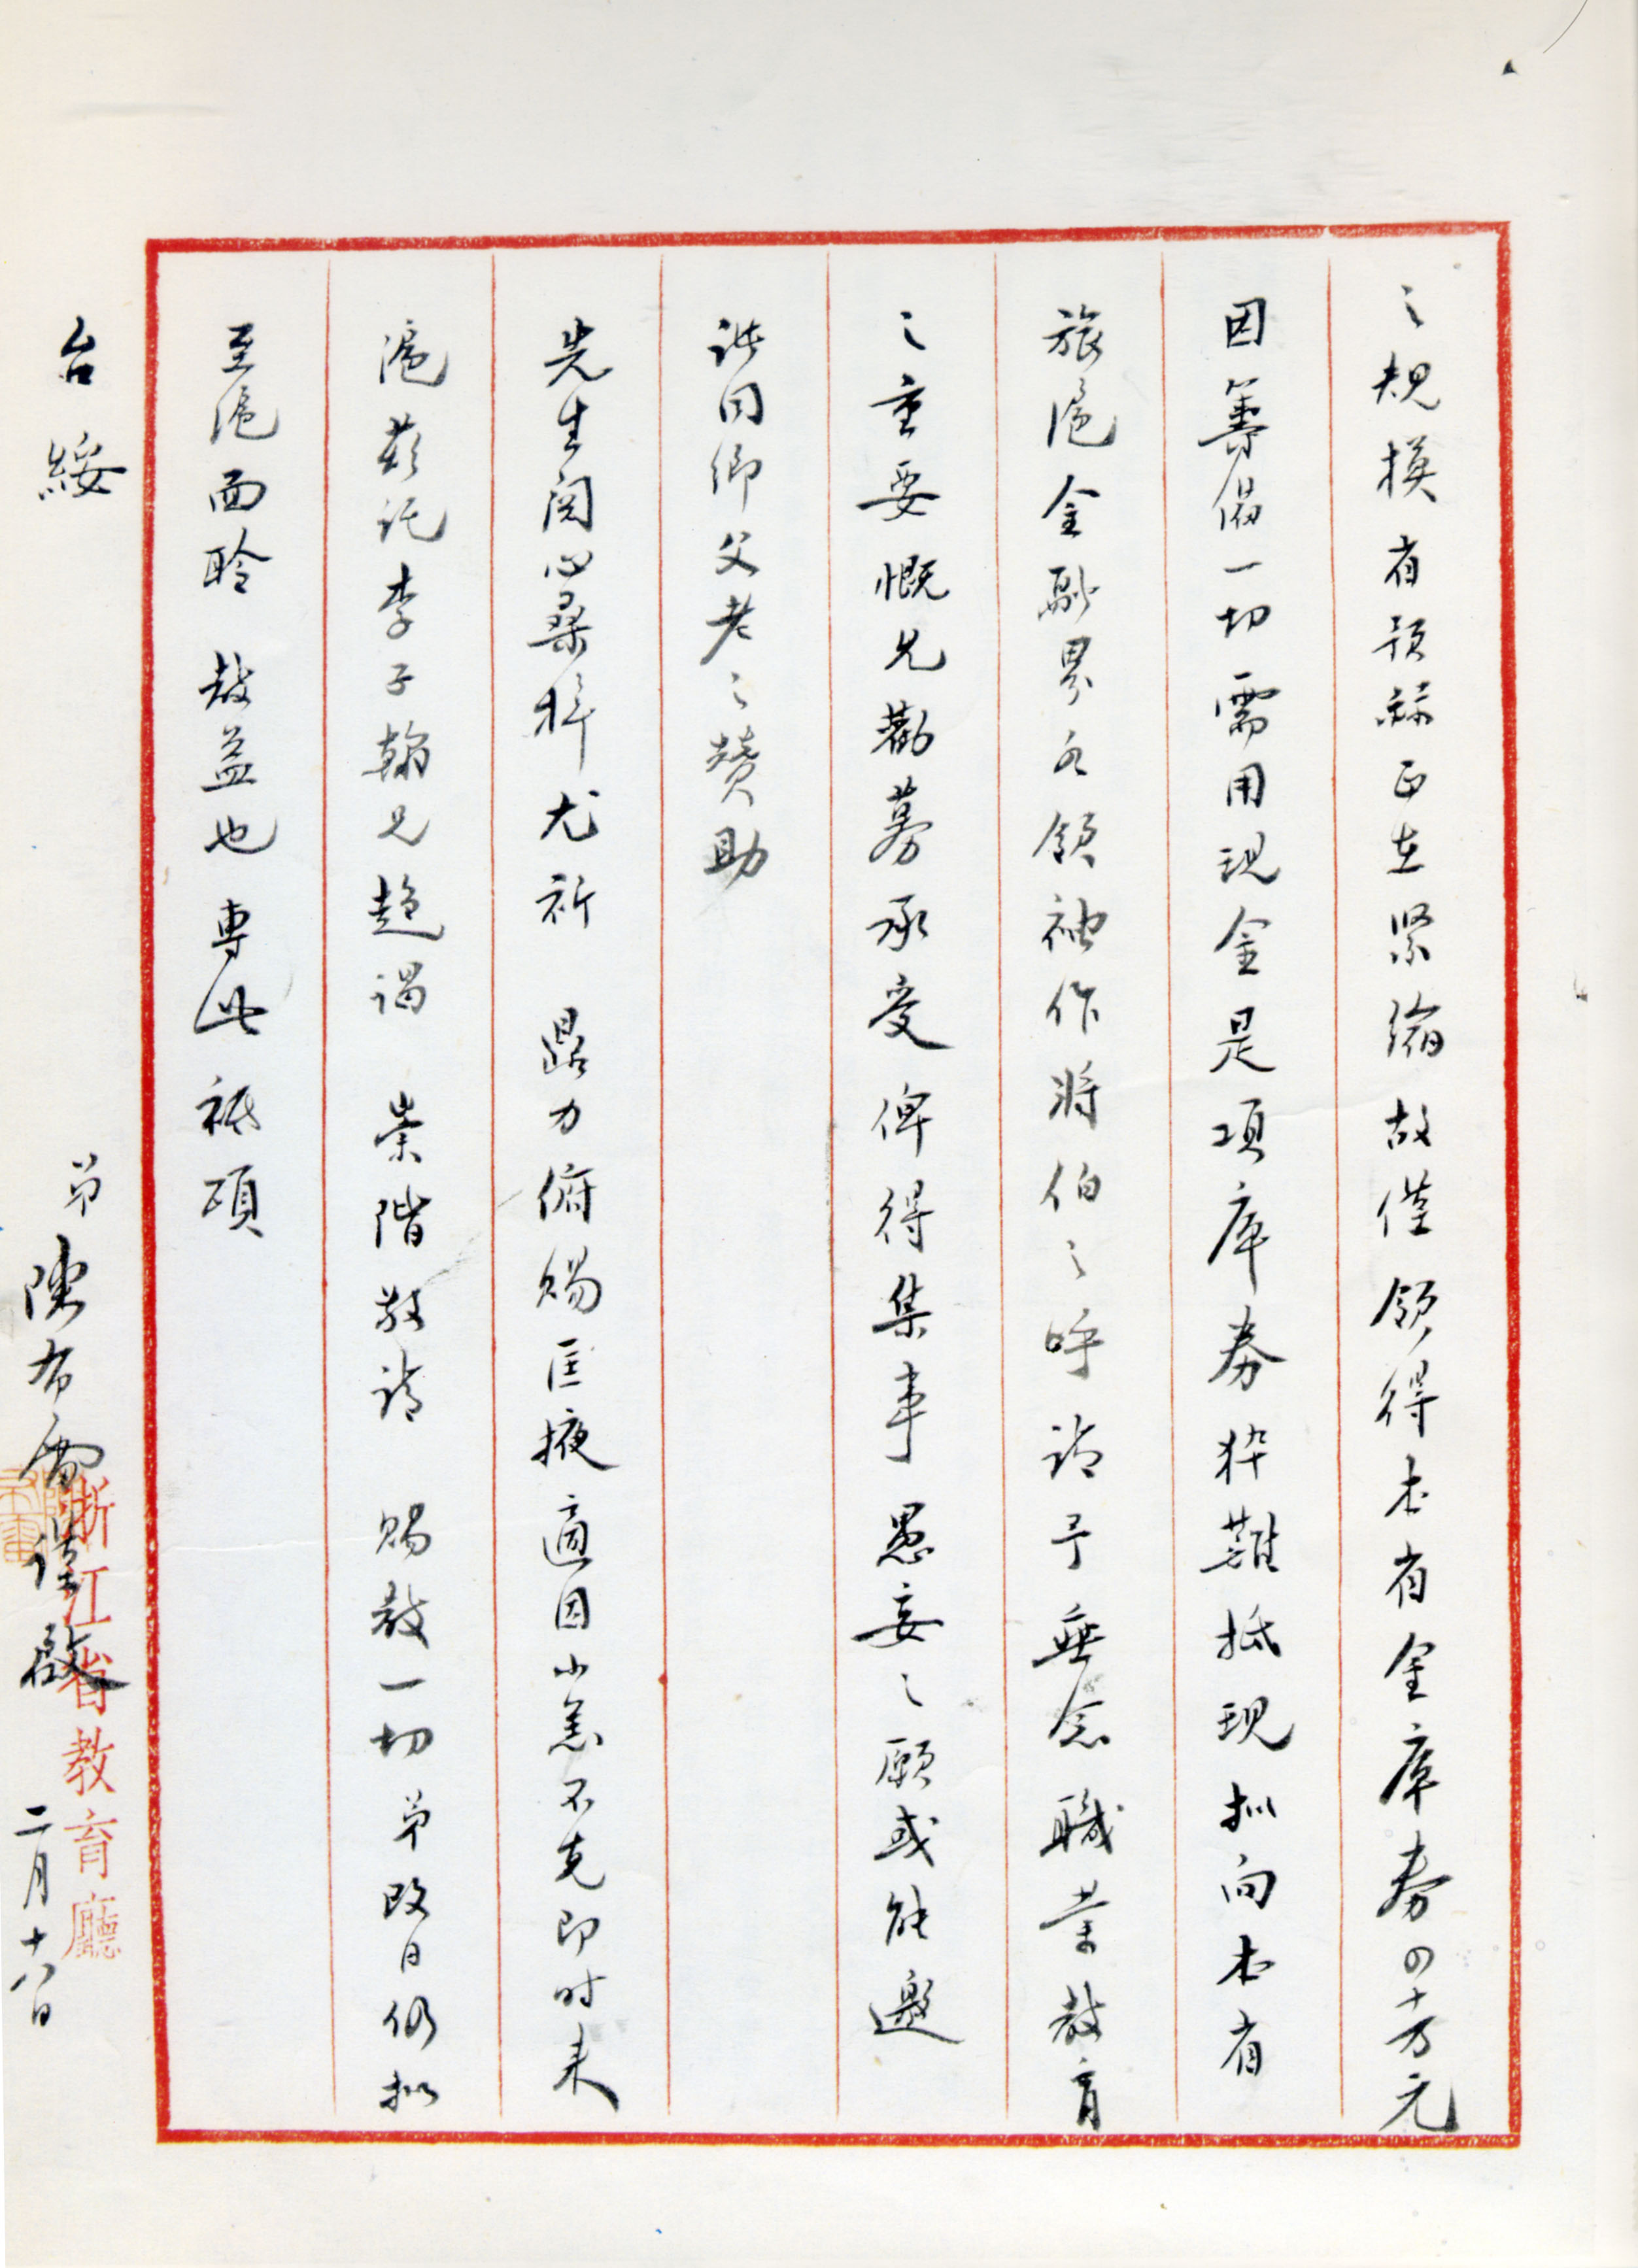 之規模省預算正在緊縮故僅領得本省金庫券四十万元
因籌備一切需用現金是項庫券猝難抵現擬向本省
旅滬金融界各領袖作將伯之呼請予垂念職業教育
之重要慨允勸募承受俾得集事愚妄之願或能邀
諸同鄉父老之贊助
先生關心桑梓尤祈 鼎力俯賜匡掖適因小恙不克即時來
滬茲託李子翰兄趨謁 崇階敬請 賜教一切弟改日仍擬
至滬面聆 教益也專此祗頌
台綏
弟陳布雷謹啟
二月十八日
浙江省教育廳